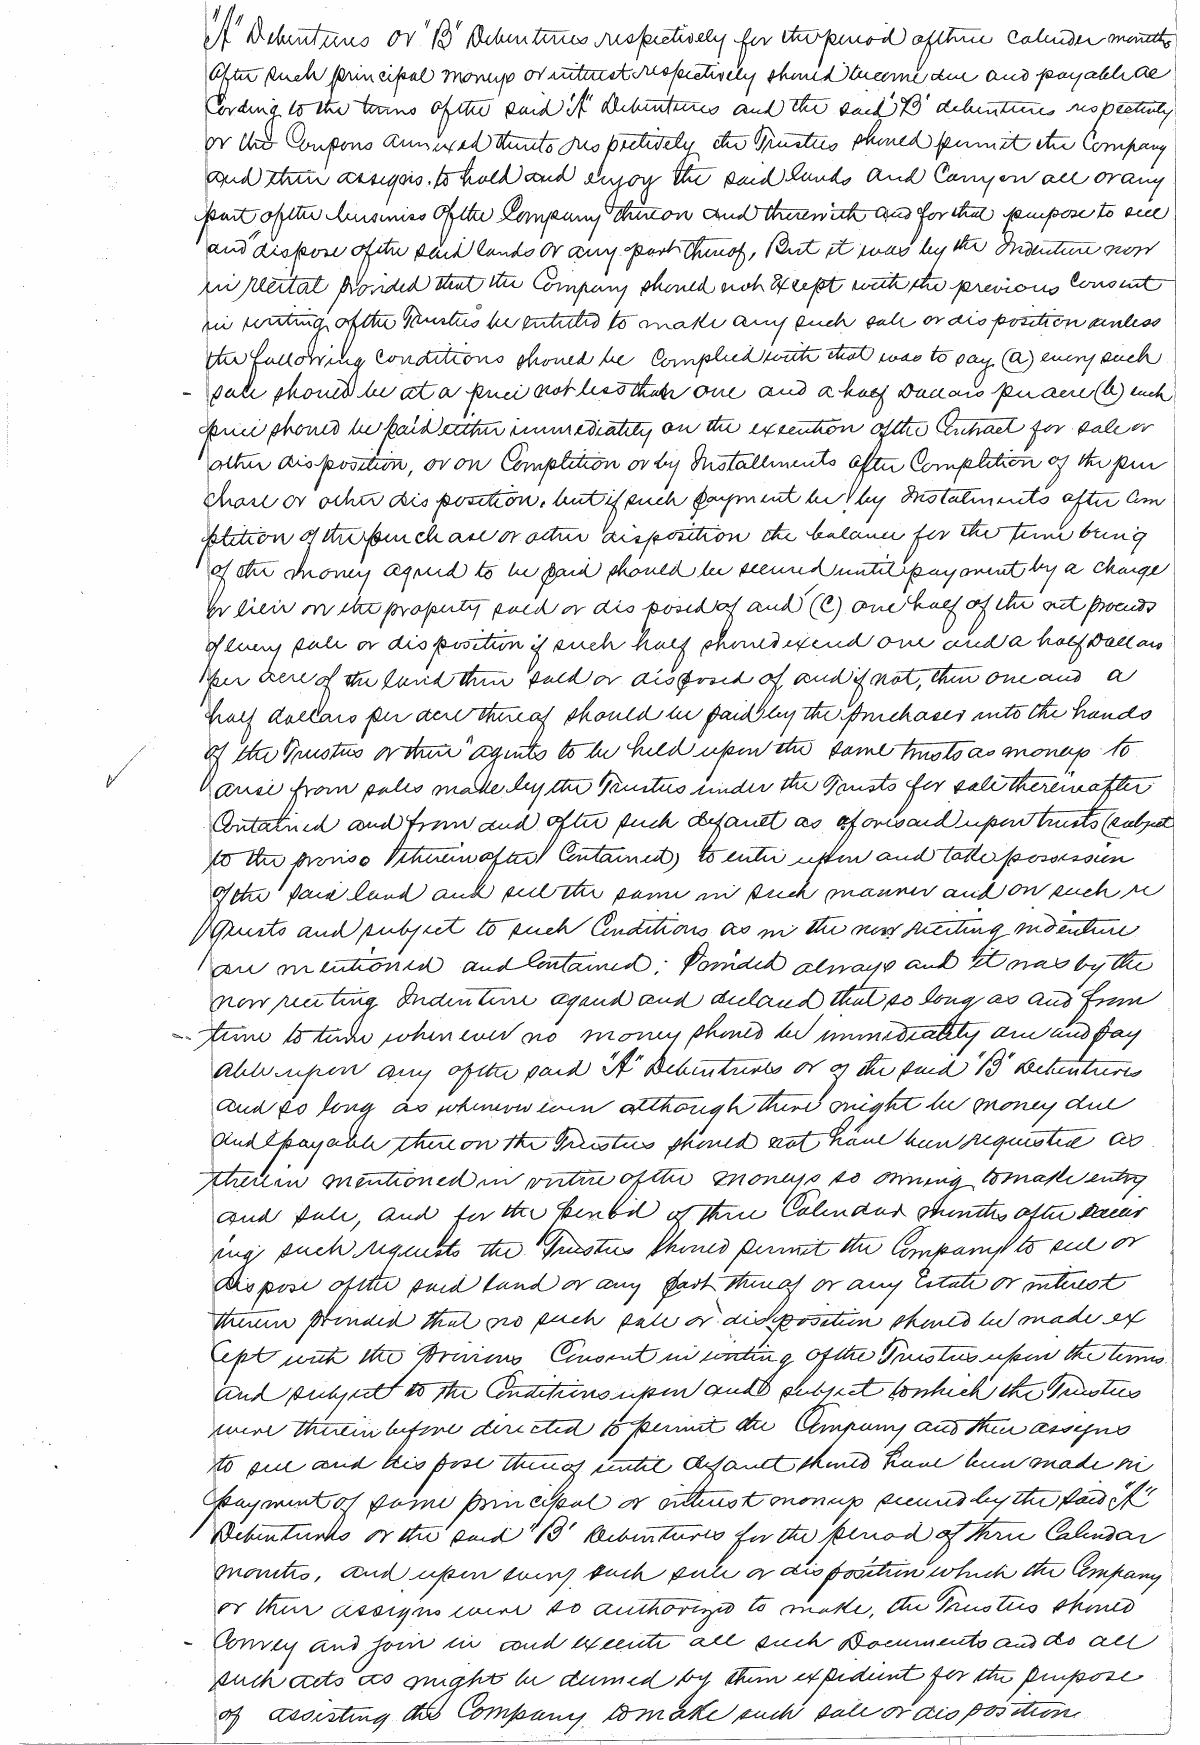 "A" Debentures or "B" Debentures respectively for the period of three calender months
after such principal moneys or interest respectively should become due and payable ac
cording to the terms of the said "A" Debentures and the said "B" debentures respectively
or the Coupons annexed thereto respectively the Trustees should permit the Company
and their assigns to hold and enjoy the said lands and Carry on all or any
part of the business of the Company thereon and therewith and for that purpose to sell
and dispose of the said lands or any part thereof, But it was by the Indenture now
in recital provided that the Company should not except with the previous Consent
in writing of the Trustees be entitled to make any such sale or disposition unless
the following conditions should be complied with that was to say (a) every such
sale should be at a price not less than one and a half Dollars per acre (b) such
price should be paid either immediately on the execution of the Contract for sale or
other disposition, or on Completion or by Installments after Completion of the pur
chase or other disposition, but if such payment be by Instalments after Com
pletion of the purchase or other disposition the balance for the time being
of the money agreed to be paid should be secured until payment by a charge
or lien on the property sold or disposed of and (C) one half of the net proceeds
of every sale or disposition if such half should exceed one and a half Dollars
per acre of the land then sold or disposed of, and if not, then one and a
half dollars per acre thereof should be paid by the purchaser into the hands
of the Trustees or their agents to be held upon the same trusts as moneys to
arise from sales made by the Trustees under the Trusts for sale thereinafter
Contained and from and after such default as aforesaid upon trusts (subject
to the proviso thereinafter Contained) to enter upon and take possession
of the said land and sell the same in such manner and on such re
quests and subject to such Conditions as in the now reciting indenture
are mentioned and Contained; Provided always and it was by the
now reciting Indenture agreed and declared that so long as and from
time to time whenever no money should be immediately due and pay
able upon any of the said "A" Debentures or of the said "B" Debentures
and so long as whenever even although there might be money due
and payable thereon the Trustees should not have been requested as
therein mentioned in virtue of the moneys so owing to make entry
and sale, and for the period of three Calendar months after receiv
ing such requests the Trustees should permit the Company to sell or
dispose of the said land or any part thereof or any Estate or interest
therein provided that no such sale or disposition should be made ex
cept with the previous Consent in writing of the Trustees upon the terms
and subject to the Conditions upon and subject to which the Trustees
were therein before directed to permit the Company and their assigns
to sell and dispose thereof until default should have been made in
payment of some principal or interest moneys secured by the said "A"
Debentures or the said "B" Debentures for the period of three Calendar
months, and upon every such sale or disposition which the Company
or their assigns were so authorized to make, the Trustees should
Convey and join in and execute all such Documents and do all
such acts as might be deemed by them expedient for the purpose
of assisting the Company to make such sale or disposition